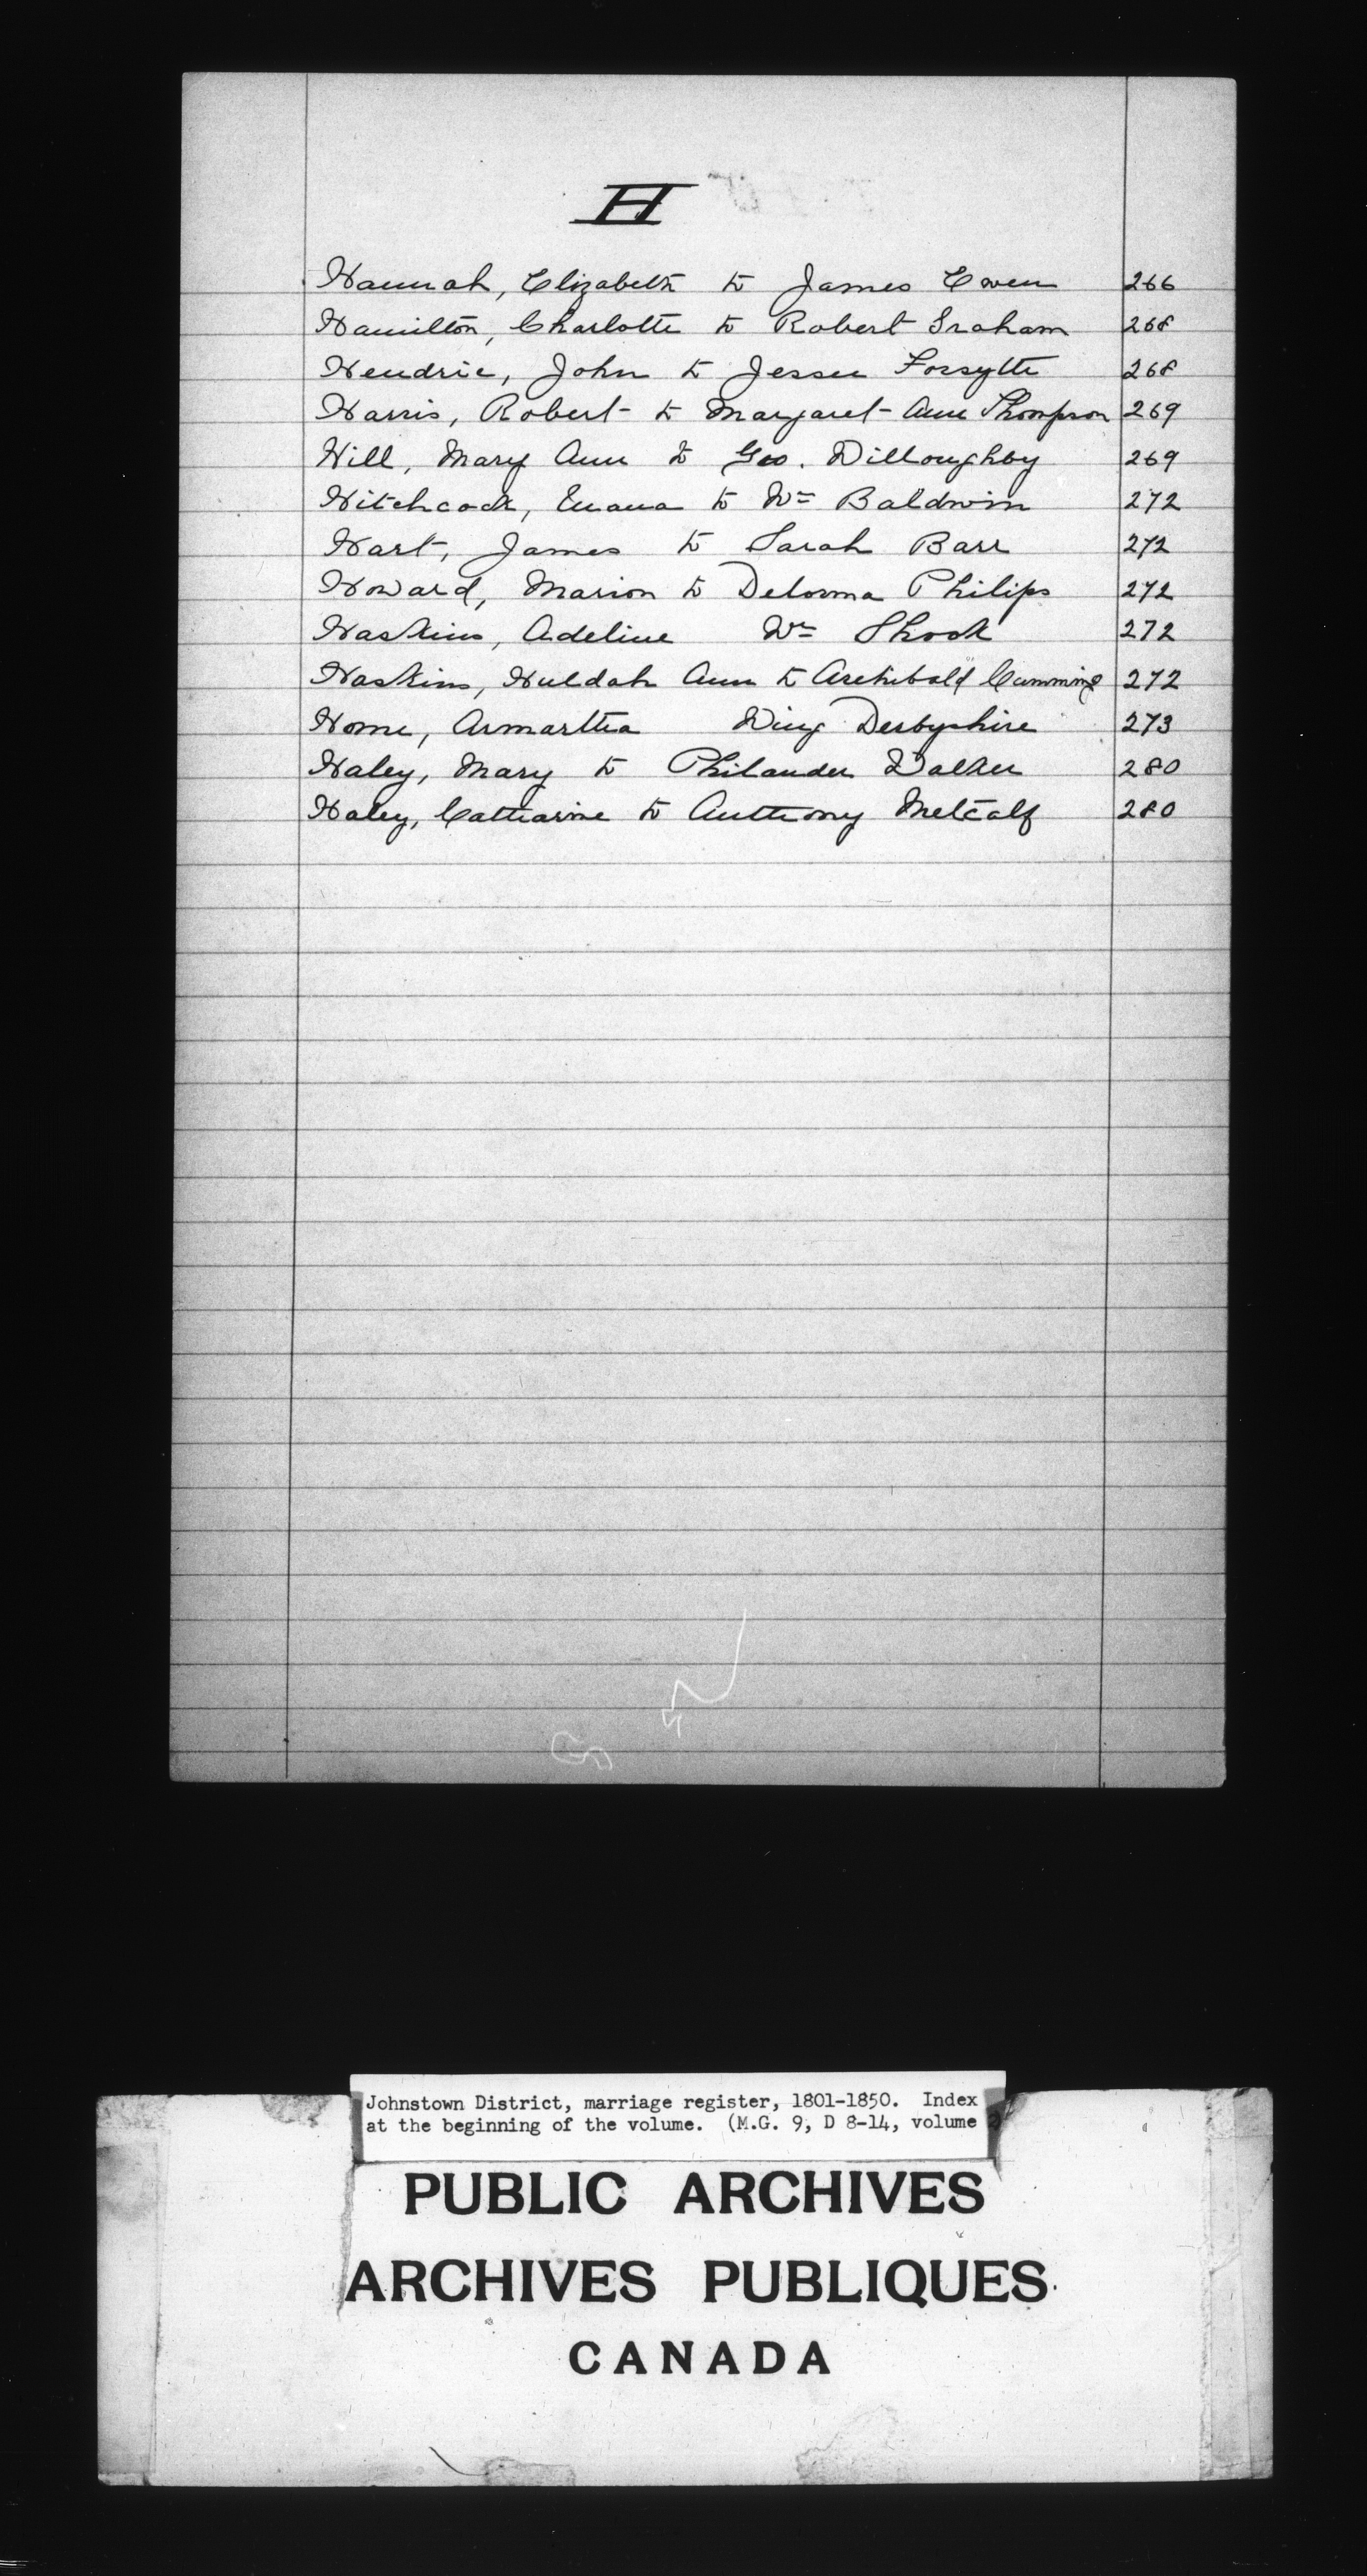 H
Hannah, Elizabeth to James Ewen 266
Hamilton, Charlotte to Robert Graham 268
Hendrie, John to Jessee Forsythe 268
Harris, Robert to Margaret Ann Thompson 269
Hill, Mary Ann to Geo. Willoughby 269
Hitchcock, to Wm Baldwin 272
Hart, James to Sarah Barr 272
Howard, Marion to Delorma Philips 272
Haskins, Adeline Wm Shook 272
Haskins, Huldah Ann to Archibald Cumming 272
Horne, Armartha Wing Derbyshire 273
Haley, Mary to Philander Walker 280
Haley, Catharine to Anthony Metcalf 280
Johnstown District, marriage register, 1801-1850. Index
at the beginning of the volume. (M.G. 9, D 8-14, volume
PUBLIC ARCHIVES
ARCHIVES PUBLIQUES
CANADA